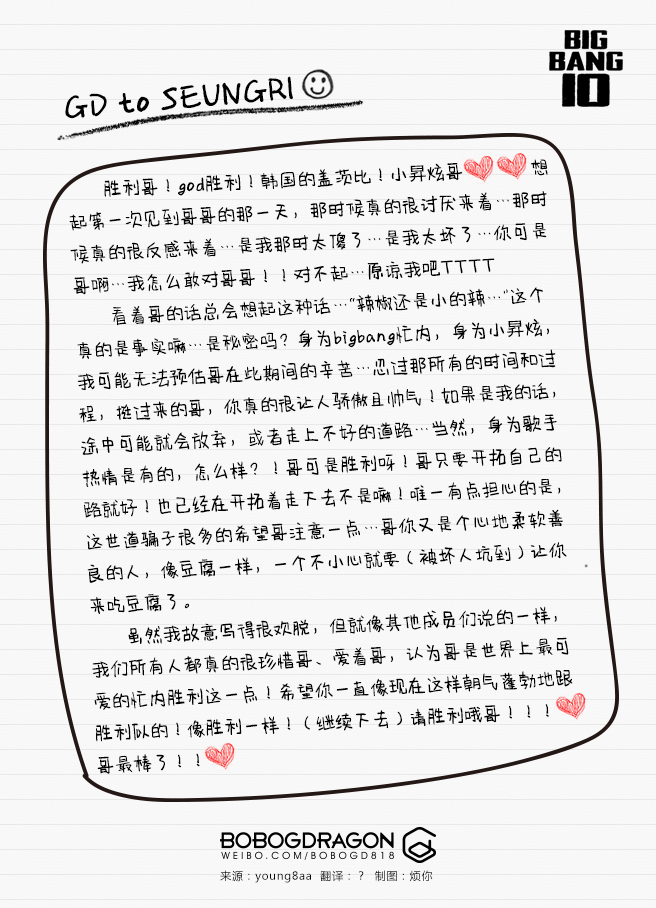 BIG
BANG
10
GD to SEUNGRI
胜利哥！god胜利！韩国的盖茨比！小昇炫哥 想
起第一次见到哥哥的那一天，那时候真的很讨厌来着…那时
候真的很反感来着…是我那时太傻了…是我太坏了…你可是
哥啊…我怎么敢对哥哥！！对不起…原谅我吧TTTT
看着哥的话总会想起这种话…“辣椒还是小的辣…”这个
真的是事实嘛…是秘密吗？身为bigbang忙内，身为小昇炫，
我可能无法预估哥在此期间的辛苦…忍过那所有的时间和过
程，挺过来的哥，你真的很让人骄傲且帅气！如果是我的话，
途中可能就会放弃，或者走上不好的道路…当然，身为歌手
热情是有的，怎么样？！哥可是胜利呀！哥只要开拓自己的
路就好！也已经在开拓着走下去不是嘛！唯一有点担心的是，
这世道骗子很多的希望哥注意一点…哥你又是个心地柔软善
良的人，像豆腐一样，一个不小心就要（被坏人坑到）让你
来吃豆腐了。
虽然我故意写得很欢脱，但就像其他成员们说的一样，
我们所有人都真的很珍惜哥、爱着哥，认为哥是世界上最可
爱的忙内胜利这一点！希望你一直像现在这样朝气蓬勃地跟
胜利队的！像胜利一样！（继续下去）请胜利哦哥！！！
哥最棒了！！
BOBOGDRAGON
WEIBO.COM/BOBOGD818
来源：young8aa 翻译：？ 制图：烦你